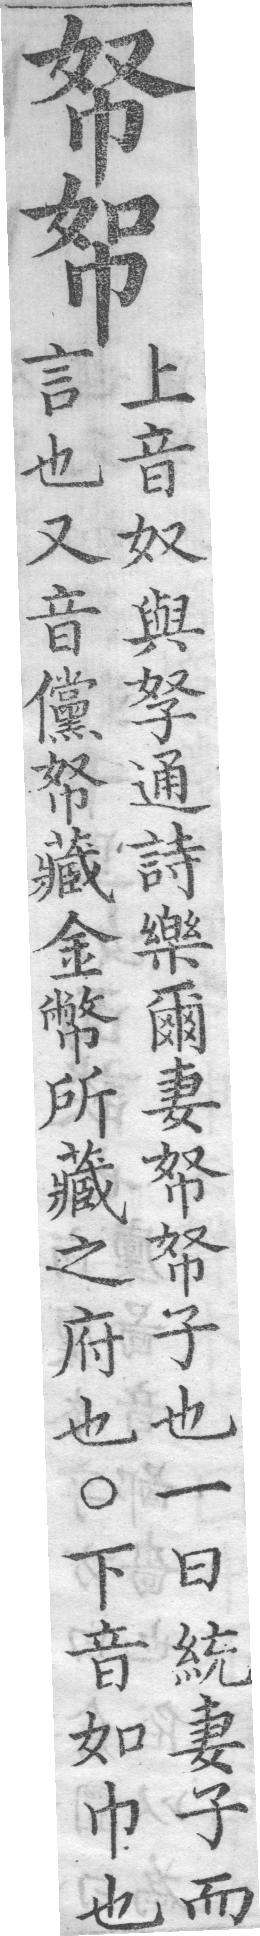 帑帤
上音奴與孥通詩樂爾妻帑帑子也一曰統妻子而
言也又音儻帑藏金幣所藏之府也○下音如巾也